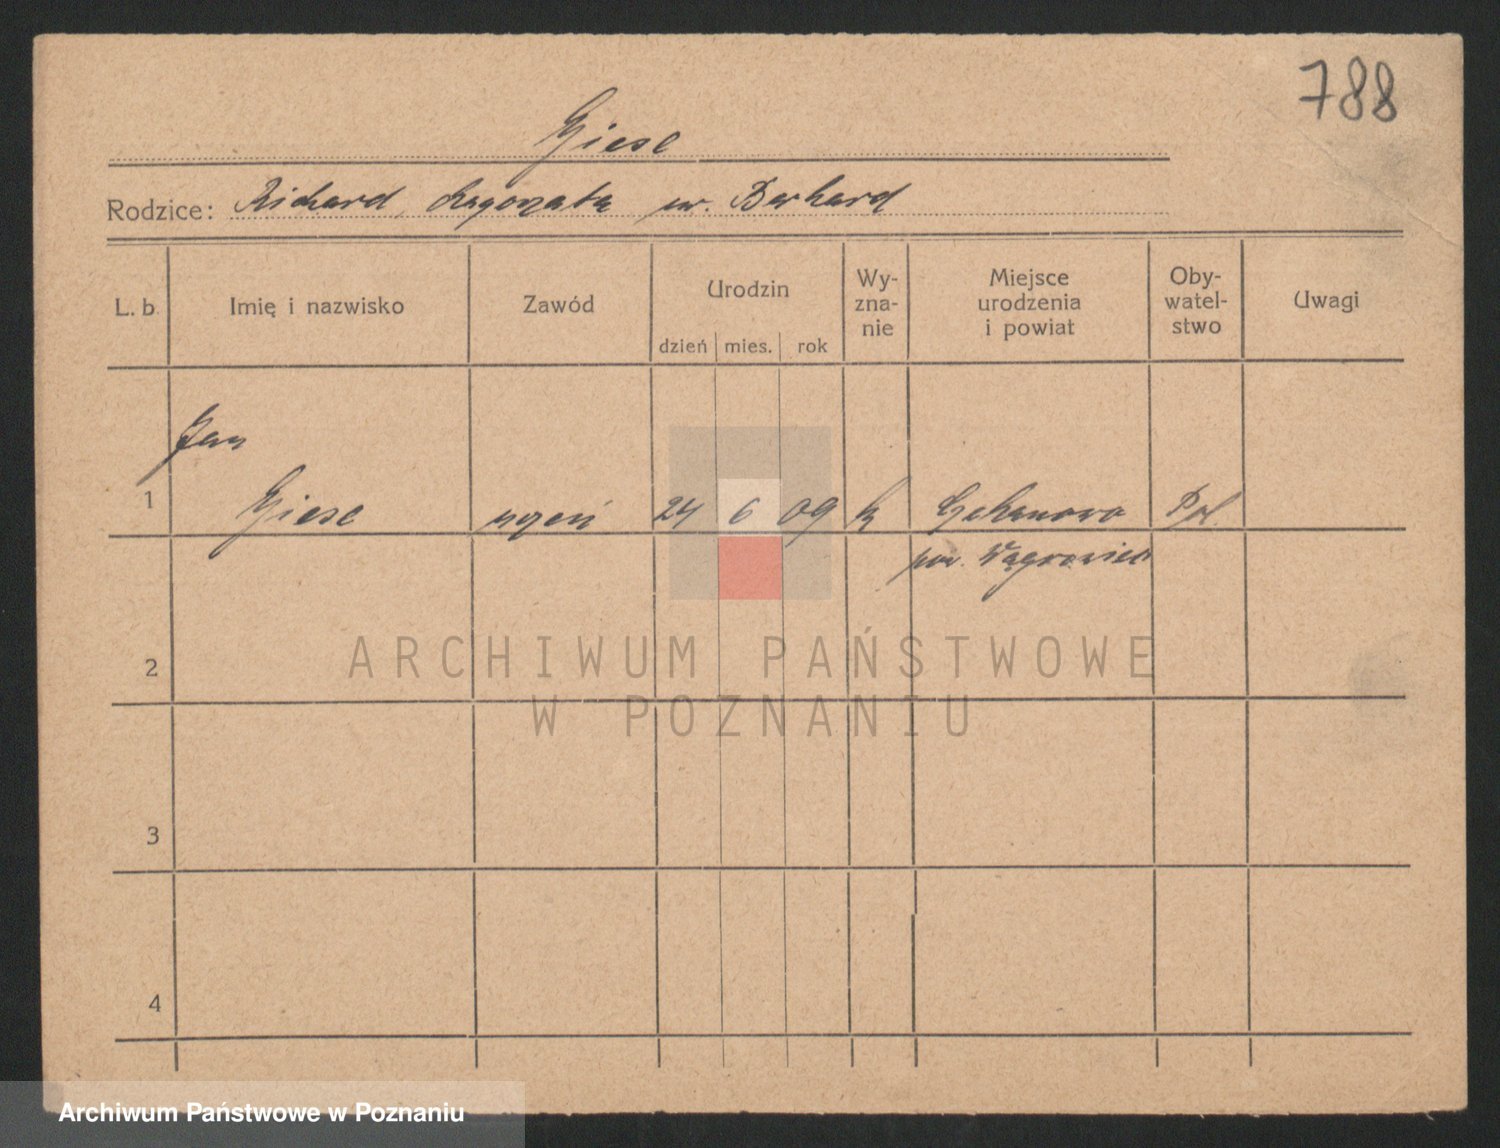 788
Giese
Rodzice: Richard, ur. Berhard
L. b. Imię i nazwisko Zawód Urodzin dzień mies. rok Wy-zna-nie Miejsce urodzenia i powiat Oby-watel-stwo Uwagi
Jan
1 Giese uczeń 24 6 09 k Pol.
pow. Wągrowiec
2
ARCHIWUM PAŃSTWOWE
W POZNANIU
3
4
Archiwum Państwowe w Poznaniu